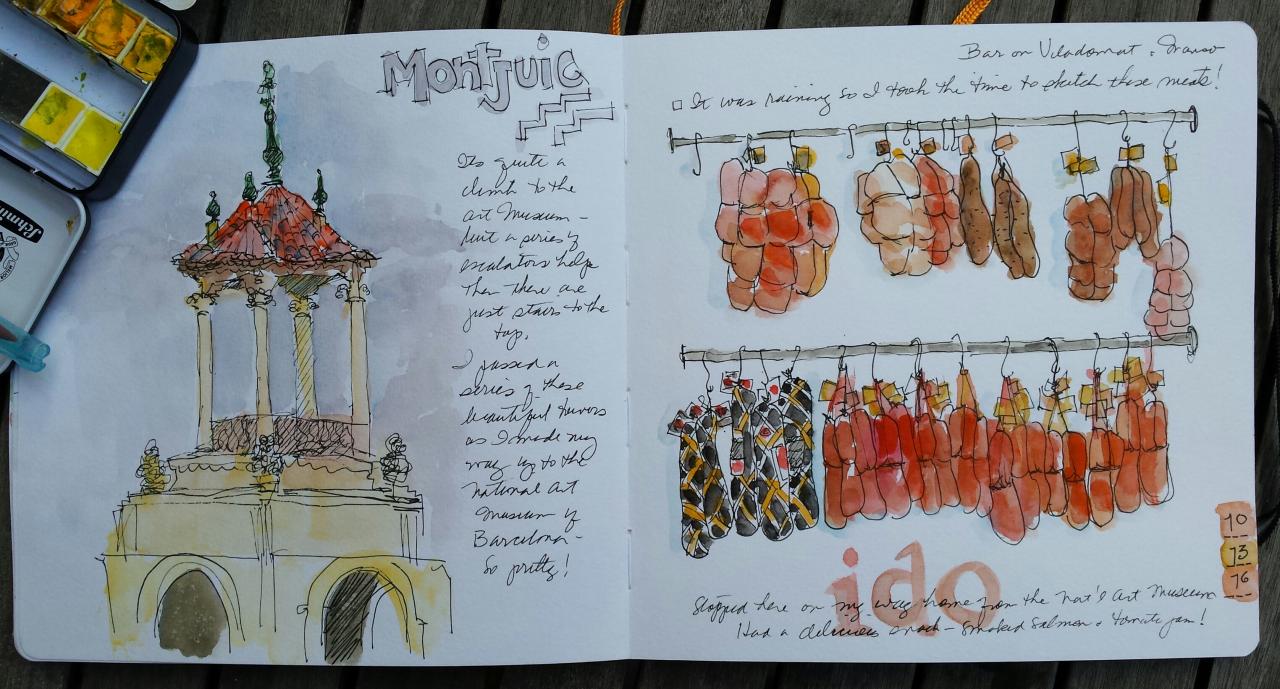 Schmin
Montjuic
Its quite a
climb to the
art Museum -
but a series of
escalators help
then there are
just stairs to the
top.
I passed a
series of these
beautiful towers
as I made my
way up to the
National Art
Museum of
Barcelona -
So pretty!
Bar on Viladomat
It was raining so I took the time to sketch these meats!
10
13
16
ido
Stopped here on my way home from the Nat'l Art Museum
Had a delicious snack - smoked salmon & tomato jam!